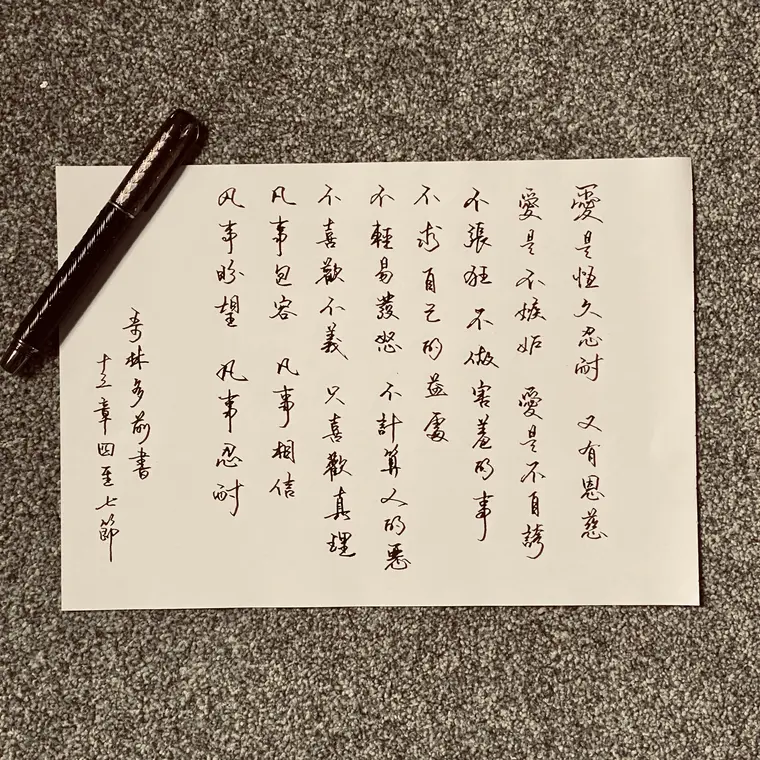 愛是恆久忍耐 又有恩慈
愛是不嫉妒 愛是不自誇
不張狂 不做害羞的事
不求自己的益處
不輕易發怒 不計算人的惡
不喜歡不義 只喜歡真理
凡事包容 凡事相信
凡事盼望 凡事忍耐
哥林多前書
十三章四至七節